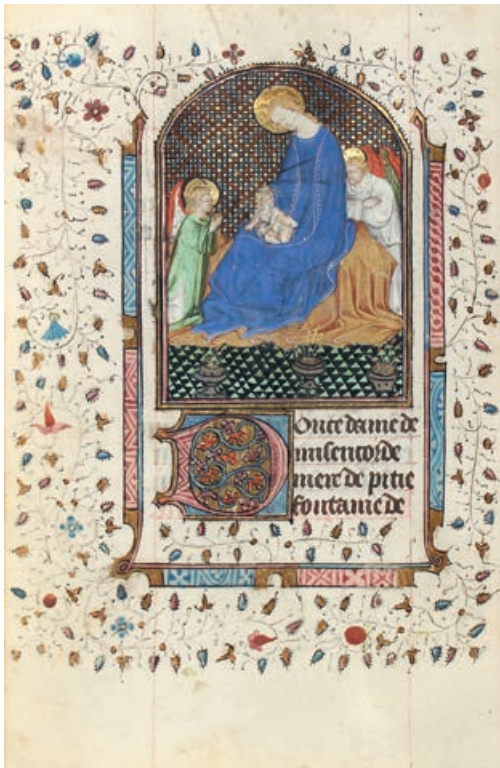 Doulce dame de
misericorde
mere de pitie
fontaine de